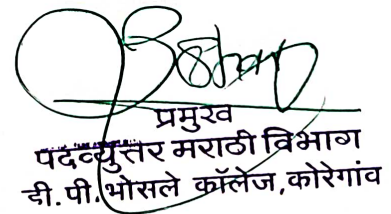 प्रमुख
पदव्युत्तर मराठी विभाग
डी.पी.भोसले कॉलेज,कोरेगांव